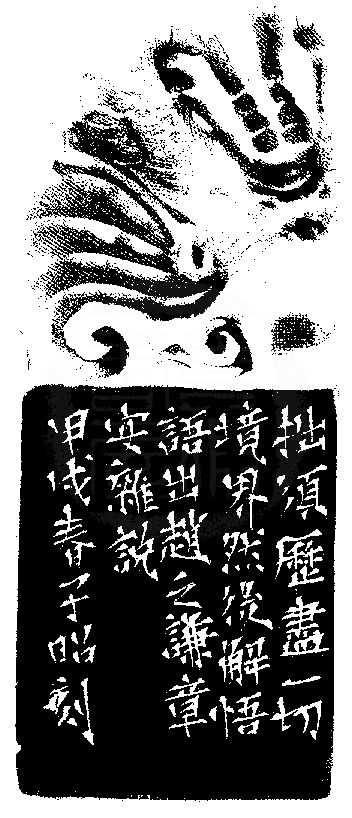 拙須歷盡一切
境界然後解悟
語出趙之謙章
安雜說
甲戌春子昭刻